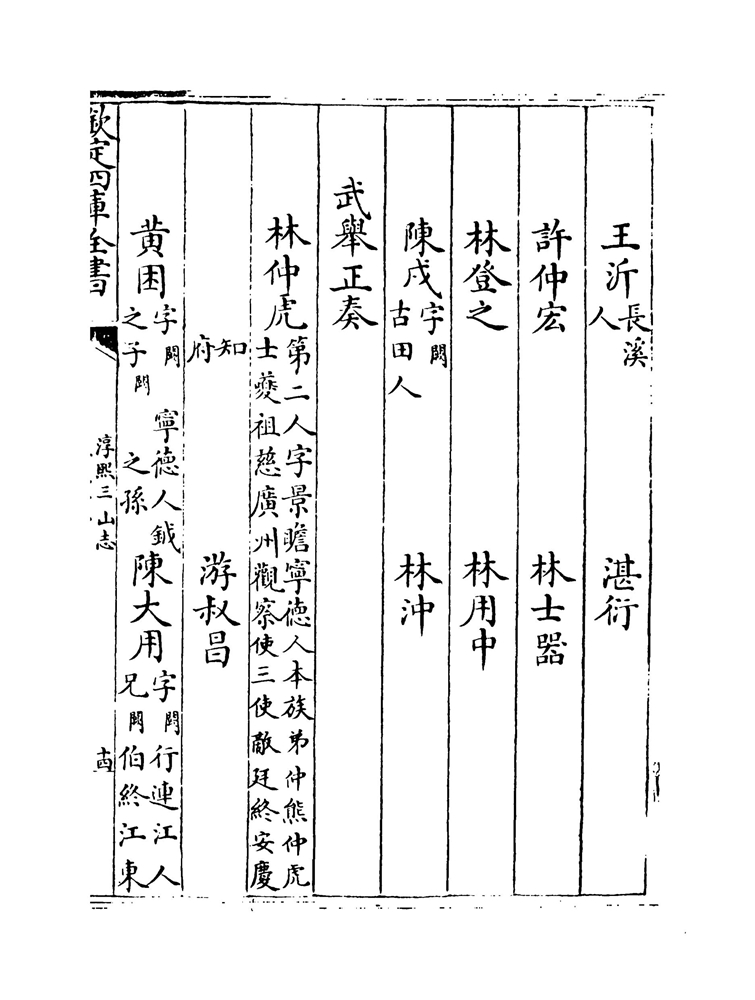 王沂長溪人　湛衍
許仲宏　林士器
林登之　林用中
陳戍字闕古田人　林沖
武舉正奏
林仲虎第二人字景瞻寧德人本族弟仲熊仲虎士夔祖慈廣州觀察使三使敵廷終安慶
知府　游叔昌
黄困字闕寧德人鉞之子闕之孫　陳大用字闕行連江人兄闕伯終江東
欽定四庫全書
淳熙三山志
十四